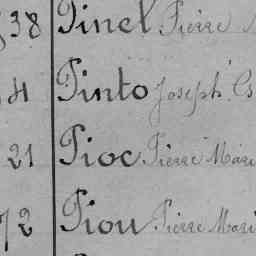 38 Pinel Pierre
4 Pinto Joseph
21 Pioc Pierre Mari
72 Piou Pierre Mari